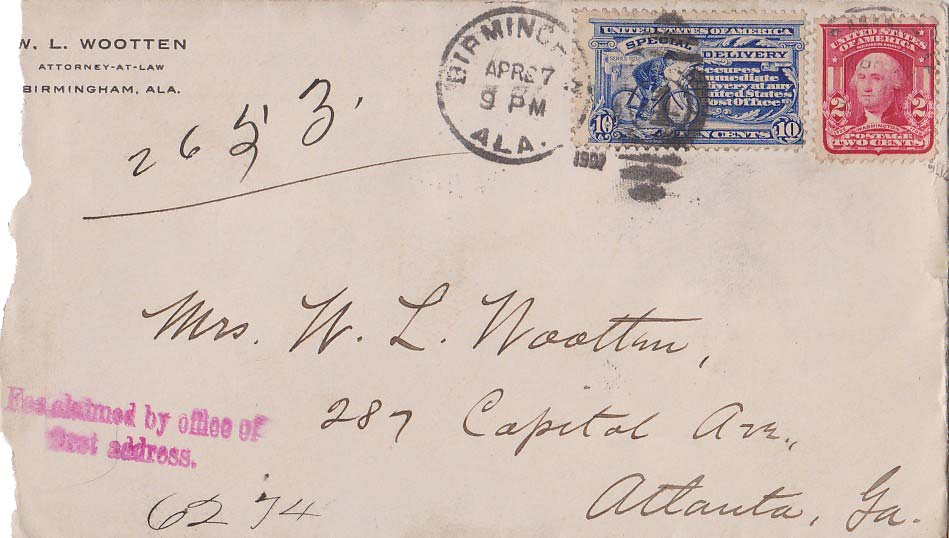 W. L. WOOTTEN
ATTORNEY-AT-LAW
BIRMINGHAM, ALA.
2653.
BIRMINGHAM
APR 27
9 PM
ALA.
1907
UNITED STATES OF AMERICA
SPECIAL DELIVERY
Secures
immediate
delivery at any
United States
Post Office
10 TEN CENTS 10
UNITED STATES
OF AMERICA
2 2
WASHINGTON
POSTAGE
TWO CENTS
Mrs. W. L. Wootten,
287 Capitol Ave.,
Atlanta, Ga.
Fee claimed by office of
first address.
6274